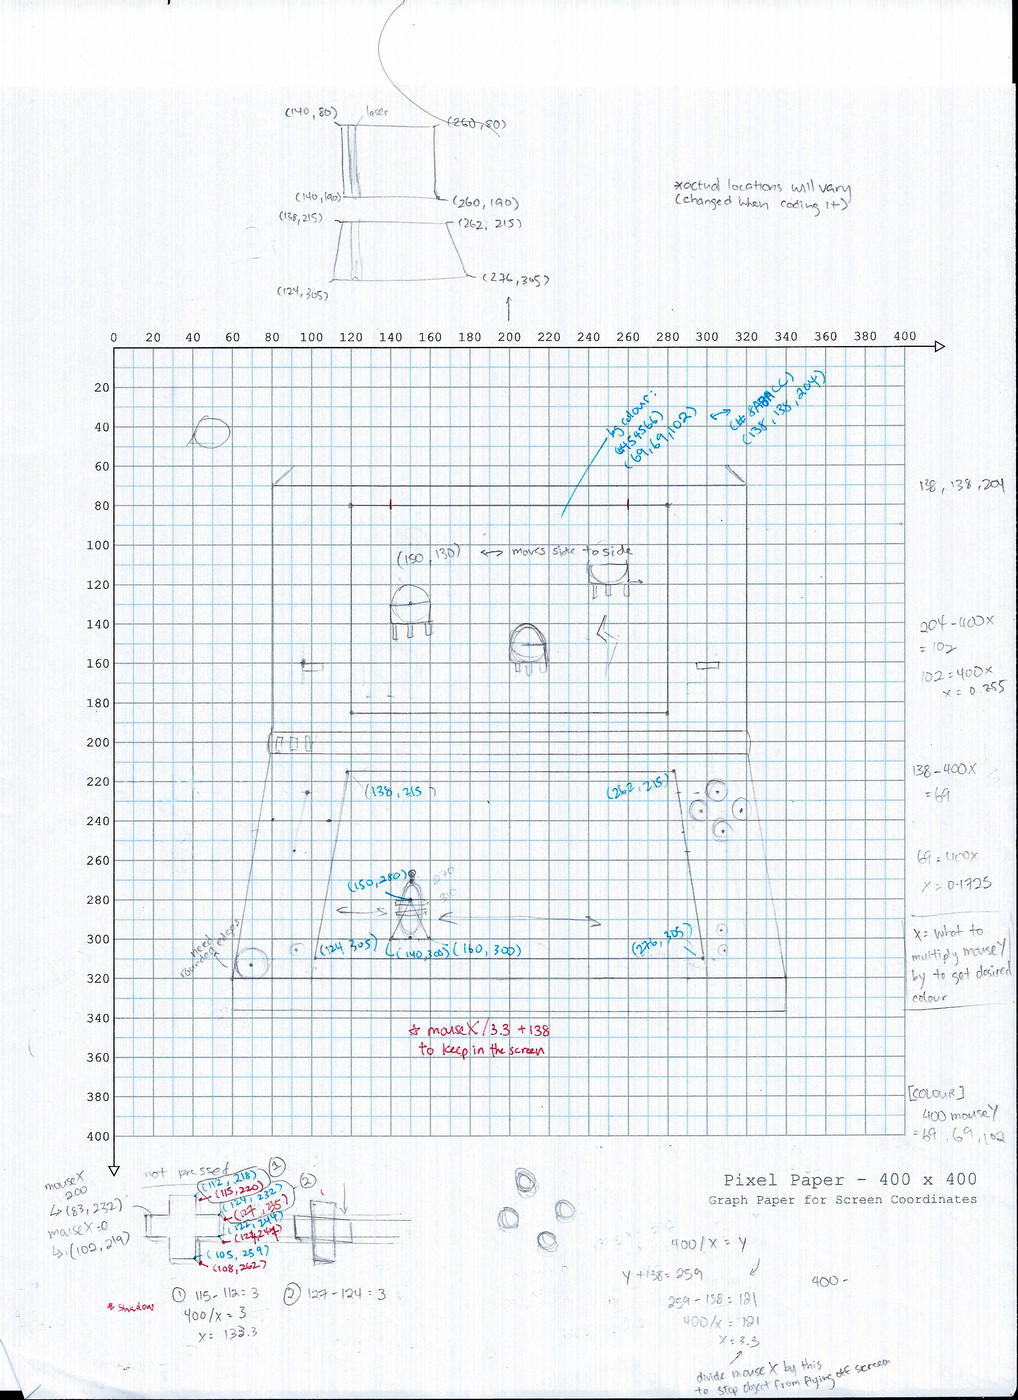 (140,80)
laser
(260,80)
(140,190)
(260,190)
(138,215)
(262, 215)
(124,305)
(276,305)
*actual locations will vary
(changed when coding it)
0 20 40 60 80 100 120 140 160 180 200 220 240 260 280 300 320 340 360 400
20
40
60
80
100
120
140
160
180
200
220
240
260
280
300
320
340
360
380
400
bg colour:
#454566
(69,69,102)
(#8A8ACC)
(138, 138, 204)
(150,130) ↔ moves side to side
138, 138, 204
204-400x
= 102
102 = 400x
x = 0.255
138-400x
= 69
69 = 400x
x = 0.1725
x = what to
multiply mouseY
by to get desired
colour
[COLOUR]
400 mouseY
= 69, 69, 102
(138,215)
(262,215)
(150,280)
270
310
need
rounded edges
(124,305)
(140,300)
(160,300)
(276,305)
* mouseX/3.3 +138
to keep in the screen
Pixel Paper - 400 x 400
Graph Paper for Screen Coordinates
mouseX
200
↳(83,232)
mouseX=0
↳(102,219)
not pressed
(112,218)
(115,220)
①
(124,232)
(127,235)
②
(127,247)
(105,259)
(108,262)
* shadow
① 115-112=3
400/x = 3
x = 133.3
② 127-124=3
400/x = y
y+138=259
259-138=121
400/x = 121
x = 3.3
400-
divide mouseX by this
to stop object from flying off screen